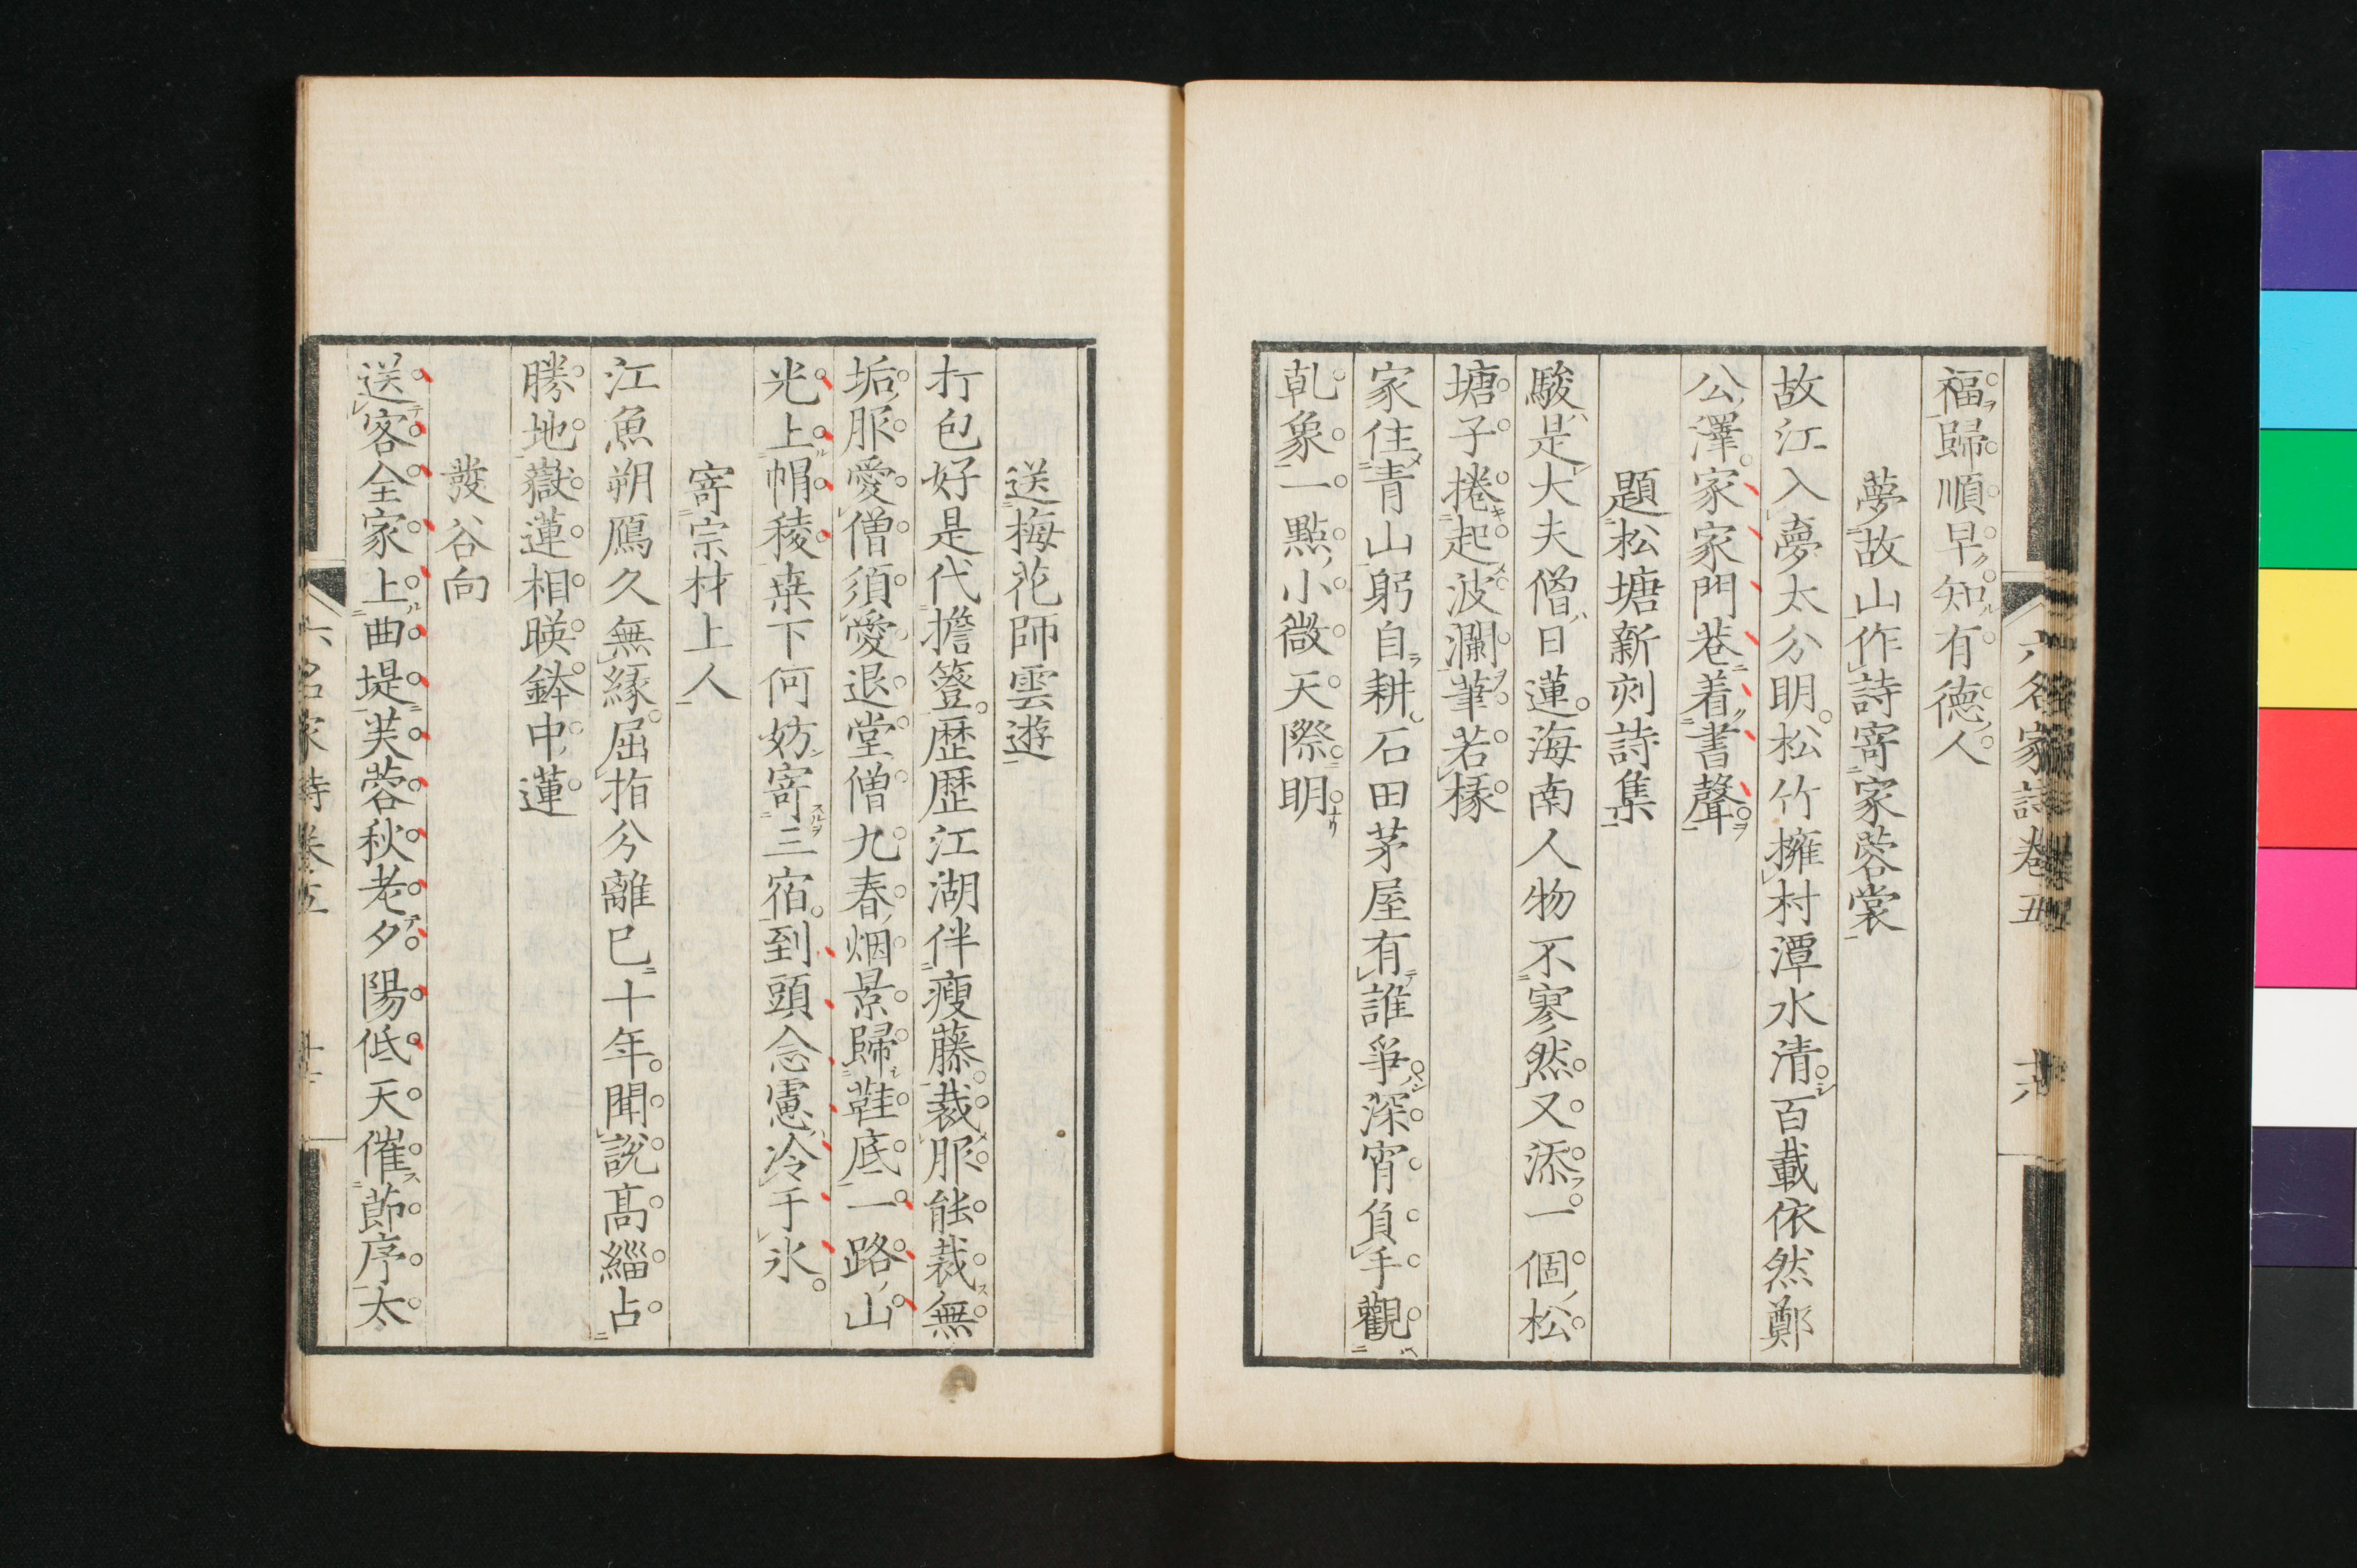 六名家詩卷五 十六
福歸順早知有德人
夢故山作詩寄家蓉裳
故江入夢太分明松竹擁村潭水清百載依然鄭
公澤家家門巷着書聲
題松塘新刻詩集
駿是大夫僧日蓮海南人物不寥然又添一個松
塘子捲起波瀾筆若椽
家住青山躬自耕石田茅屋有誰爭深宵負手觀
乾象一點小微天際明
送梅花師雲遊
打包好是代擔簦歷歷江湖伴瘦藤裁服能裁無
垢服愛僧須愛退堂僧九春烟景歸鞋底一路山
光上帽稜桒下何妨寄三宿到頭念憲冷于氷
寄宗材上人
江魚朔鴈久無緣屈指分離已十年聞說高緇占
勝地嶽蓮相暎鉢中蓮
發谷向
送客全家上曲堤芙蓉秋老夕陽低天催節序太
六名家詩卷五